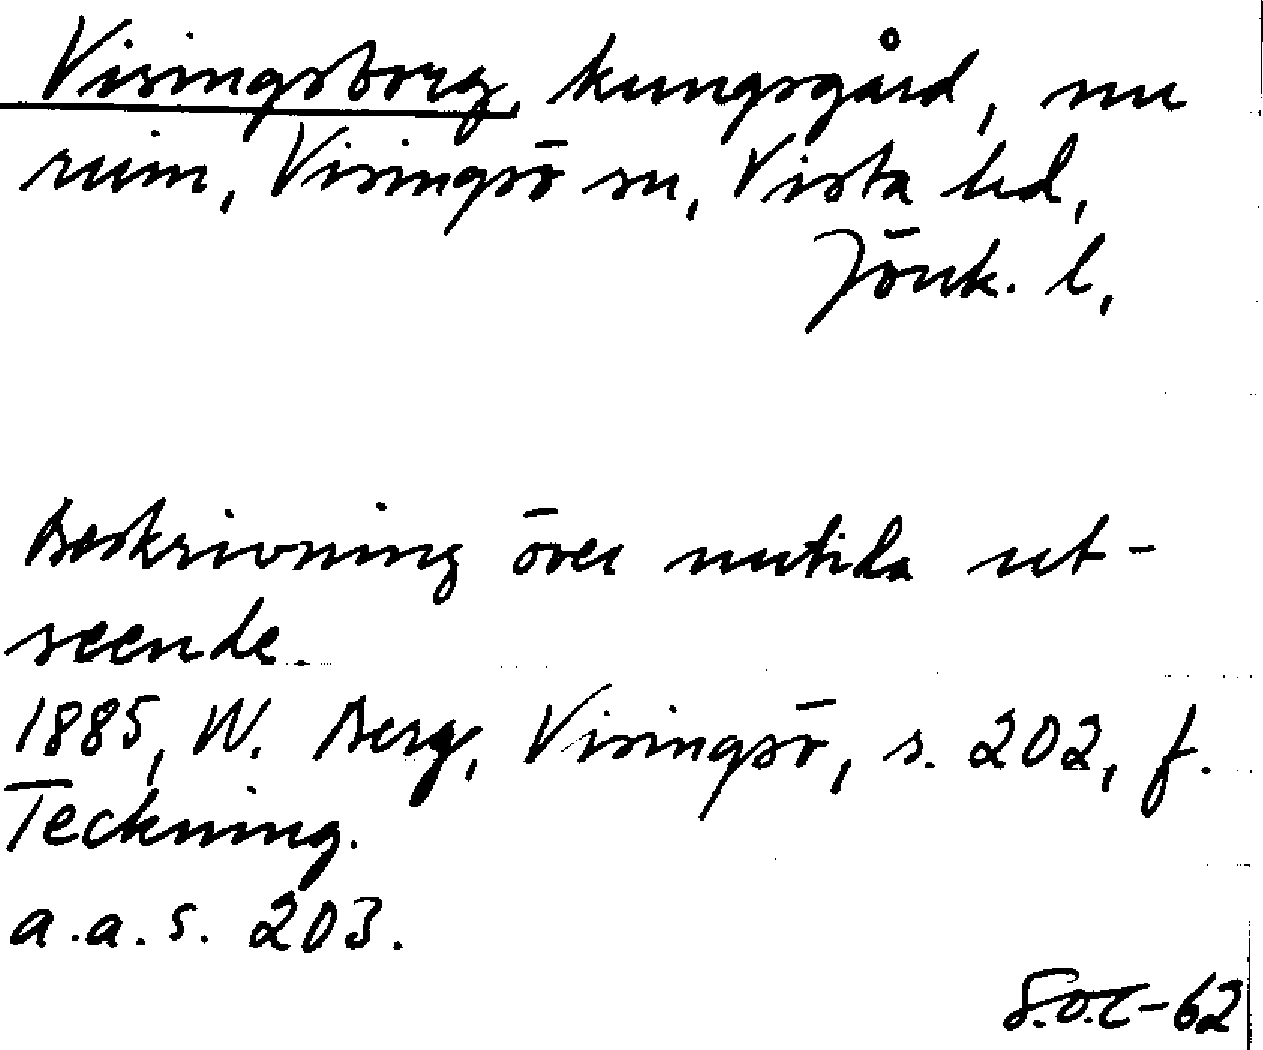 Visingsborg, kungsgård, nu
ruin, Visingsö sn, Vista hd,
Jönk. l,
Beskrivning över nutida ut-
seende.
1885, W. Berg, Visingsö, s. 202, f.
Teckning.
a.a.s. 203.
S.O.C-62